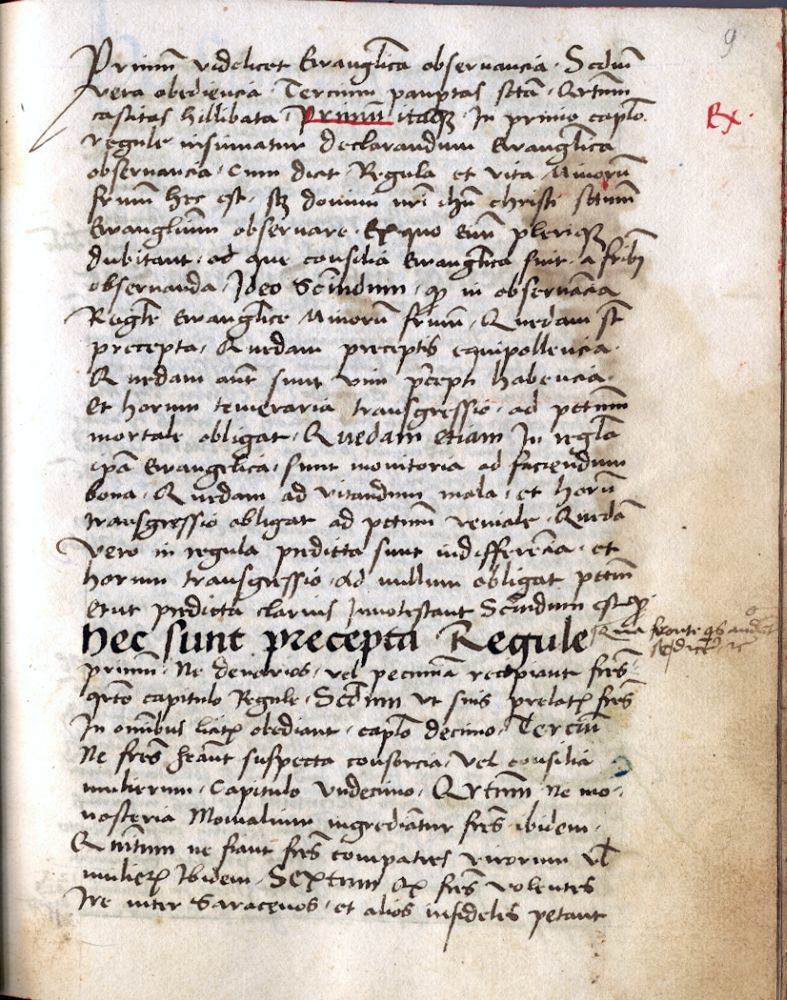 9
Primũ videlicet Ewanglica observancia. Scdũ
vera obediencia. Tercium paupertas sctã. Qrtum
castitas hillibata. Primũ itaqꝫ. In primo caplo
regule insinuatur declarandum Ewanglica
observancia. Cum dicat Regula et vita Minorũ
frum hec est. sꝫ domini nri ihũ christi sctum
Ewanglium observare. Ex quo enĩ pleriqꝫ
dubitant. ad que consilia Ewanglica sint a fribꝫ
observanda. Ideo Sciendum. ꝙ in observãcia
Regle Ewanglice Minorũ frum. Quedam sũt
precepta. Quedam preceptis equipollencia.
Quedam aut sunt vim precepti habencia.
Et horum temeraria transgressio. ad pctum
mortale obligat. Quedam etiam In regla
ipã Ewangelica. sunt monitoria ad faciendum
bona. Quedam ad vitandum mala. et horũ
transgressio obligat ad pctum veniale. Quedã
vero in regula predicta sunt indifferẽcia. et
horum transgressio. ad nullum obligat pctm
Et ut predicta clarius Innotescant Sciendum est ꝙ.
hec sunt precepta Regule
primũ. Ne denarios. vel pecuniã recipiant fres.
qrto capitulo Regule. Scdum Ut suis prelatꝭ fres
In omibus licitꝭ obediant. caplo decimo. Terciũ
Ne fres heãnt suspecta consorcia. Vel consilia
mulierum. Capitulo Undecimo. Qrtum Ne mo-
nasteria Monialium ingrediãtur fres ibidem.
Quintum ne fiant fres compatres virorum vl
mulierꝝ Ibidem. Sextum Qꝫ fres volentes
Ire inter Saracenos. et alios infideles petant